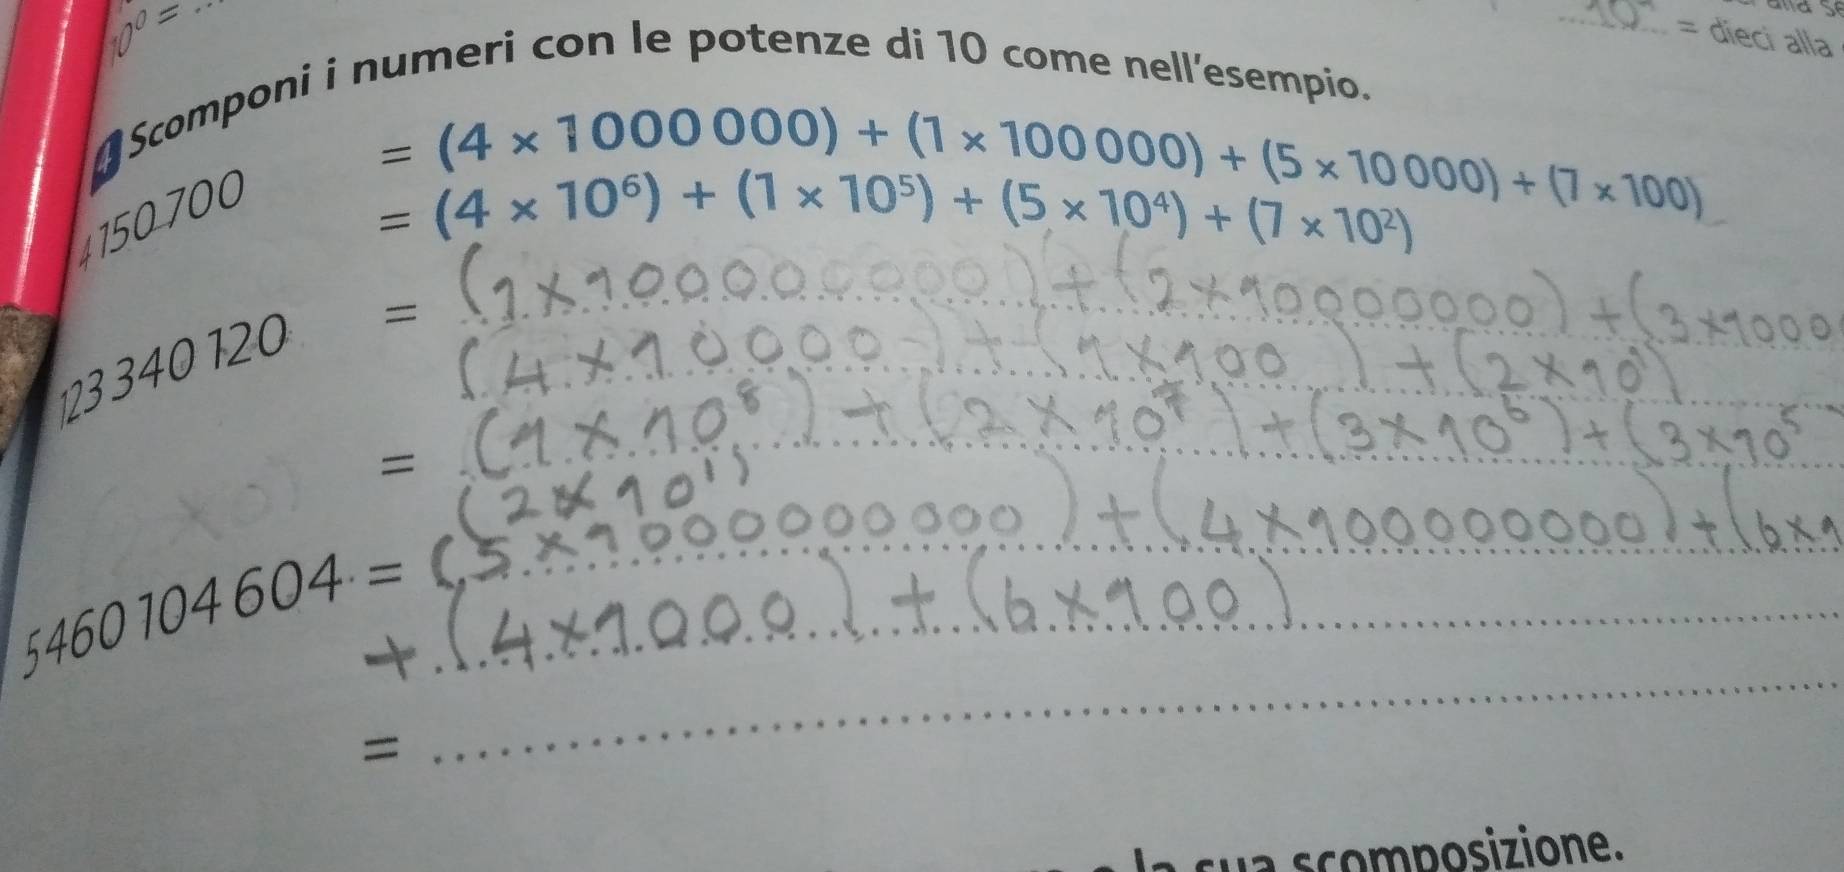 10⁰ = ...
= dieci alla
4 Scomponi i numeri con le potenze di 10 come nell'esempio.
4 150 700 = (4 × 1 000 000) + (1 × 100 000) + (5 × 10 000) + (7 × 100)
= (4 × 10⁶) + (1 × 10⁵) + (5 × 10⁴) + (7 × 10²)
123 340 120 = (1×100000000) + (2×10000000) + (3×1000
(4×10000) + (1×100) + (2×10)
= (1×10⁸) + (2×10⁷) + (3×10⁶) + (3×10⁵
(2×10¹)
5 460 104 604 = (5×1000000000) + (4×100000000) + (6×1
+ (4×1000) + (6×100)
=
la sua scomposizione.